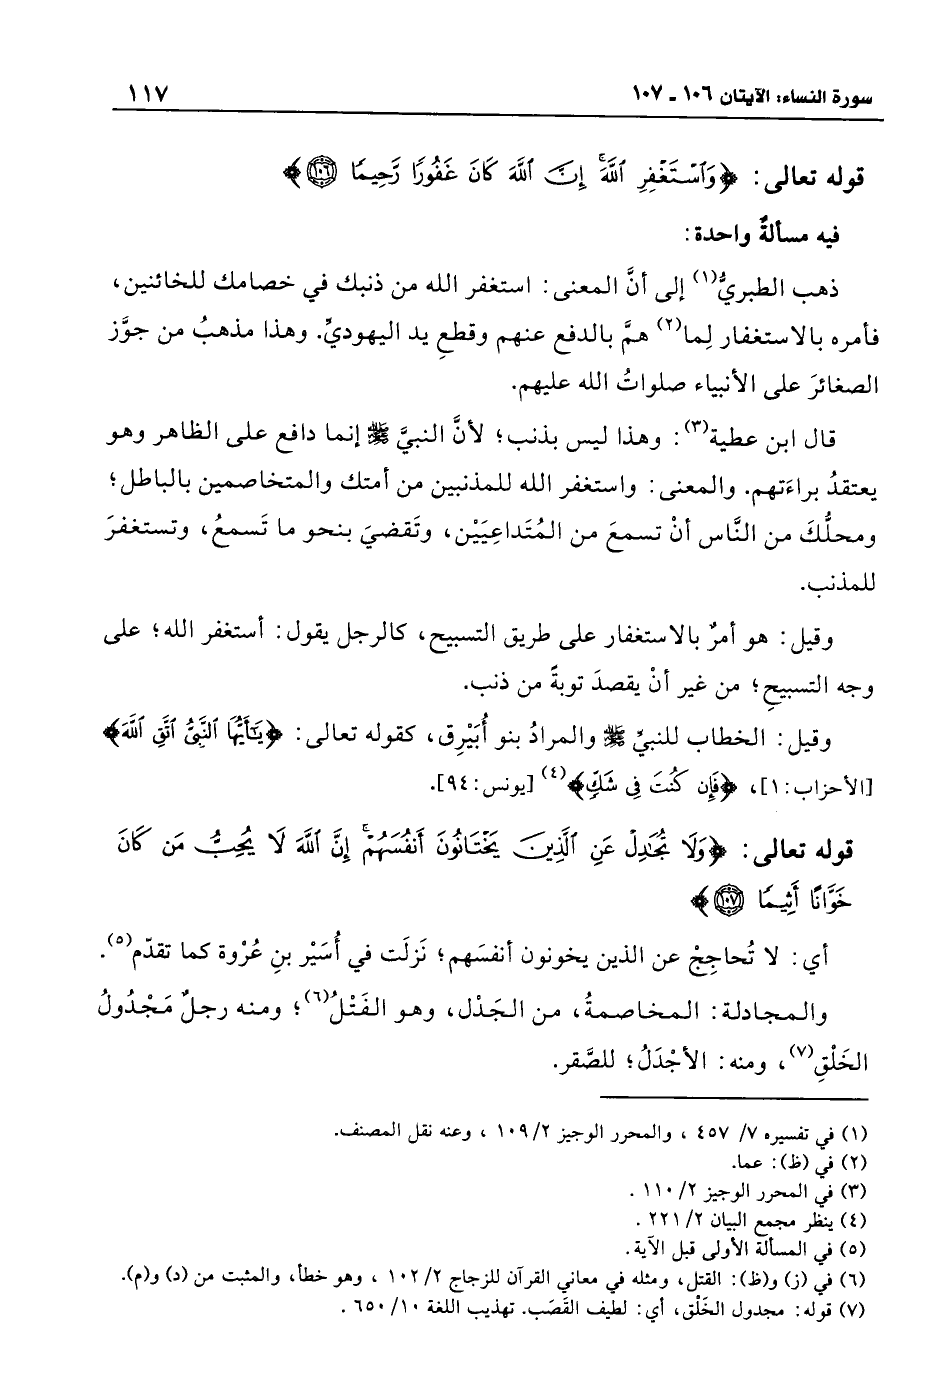 سورة النساء: الآيتان ١٠٦ - ١٠٧ ١١٧
قوله تعالى: ﴿وَٱسْتَغْفِرِ ٱللَّهَ إِنَّ ٱللَّهَ كَانَ غَفُورًا رَّحِيمًا ١٠٦﴾
فيه مسألةٌ واحدة:
ذهب الطبريُّ(١) إلى أنَّ المعنى: استغفر الله من ذنبك في خصامك للخائنين،
فأمره بالاستغفار لِما(٢) همَّ بالدفع عنهم وقطعِ يد اليهوديِّ. وهذا مذهبُ من جوَّز
الصغائرَ على الأنبياء صلواتُ الله عليهم.
قال ابن عطية(٣): وهذا ليس بذنب؛ لأنَّ النبيَّ ﷺ إنما دافع على الظاهر وهو
يعتقدُ براءَتهم. والمعنى: واستغفر الله للمذنبين من أمتك والمتخاصمين بالباطل؛
ومحلُّكَ من النَّاس أنْ تسمعَ من المُتَداعِيَيْن، وتَقضيَ بنحو ما تَسمعُ، وتستغفرَ
للمذنب.
وقيل: هو أمرٌ بالاستغفار على طريق التسبيح، كالرجل يقول: أستغفر الله؛ على
وجه التسبيحِ؛ من غير أنْ يقصدَ توبةً من ذنب.
وقيل: الخطاب للنبيِّ ﷺ والمرادُ بنو أُبَيْرِق، كقوله تعالى: ﴿يَٰٓأَيُّهَا ٱلنَّبِىُّ ٱتَّقِ ٱللَّهَ﴾
[الأحزاب: ١]، ﴿فَإِن كُنتَ فِى شَكٍّ﴾(٤) [يونس: ٩٤].
قوله تعالى: ﴿وَلَا تُجَٰدِلْ عَنِ ٱلَّذِينَ يَخْتَانُونَ أَنفُسَهُمْ إِنَّ ٱللَّهَ لَا يُحِبُّ مَن كَانَ
خَوَّانًا أَثِيمًا ١٠٧﴾
أي: لا تُحاجِجْ عن الذين يخونون أنفسَهم؛ نَزلَت في أُسَيْر بنِ عُرْوة كما تقدّم(٥).
والمجادلة: المخاصمةُ، من الجَدْل، وهو الفَتْلُ(٦)؛ ومنه رجلٌ مَجْدُولُ
الخَلْقِ(٧)، ومنه: الأجْدَلُ؛ للصَّقر.
(١) في تفسيره ٧/ ٤٥٧ ، والمحرر الوجيز ٢/ ١٠٩ ، وعنه نقل المصنف.
(٢) في (ظ): عما.
(٣) في المحرر الوجيز ٢/ ١١٠ .
(٤) ينظر مجمع البيان ٢/ ٢٢١ .
(٥) في المسألة الأولى قبل الآية.
(٦) في (ز) و(ظ): القتل، ومثله في معاني القرآن للزجاج ٢/ ١٠٢ ، وهو خطأ، والمثبت من (د) و(م).
(٧) قوله: مجدول الخَلْق، أي: لطيف القَصَب. تهذيب اللغة ١٠/ ٦٥٠ .